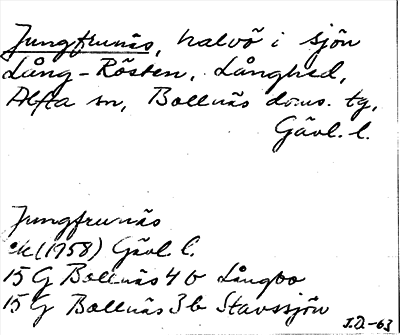 Jungfrunäs, halvö i sjön
Lång-Rösten, Långhed,
Alfta sn, Bollnäs doms. tg,
Gävl. l.
Jungfrunäs
ek (1958) Gävl l.
15 G Bollnäs 4 b Långbo
15 G Bollnäs 3 b Stavssjön
J.D.-63